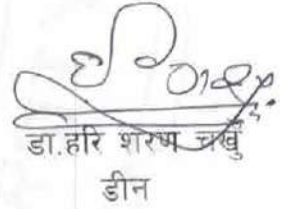 डा.हरि शरण चखुं
डीन